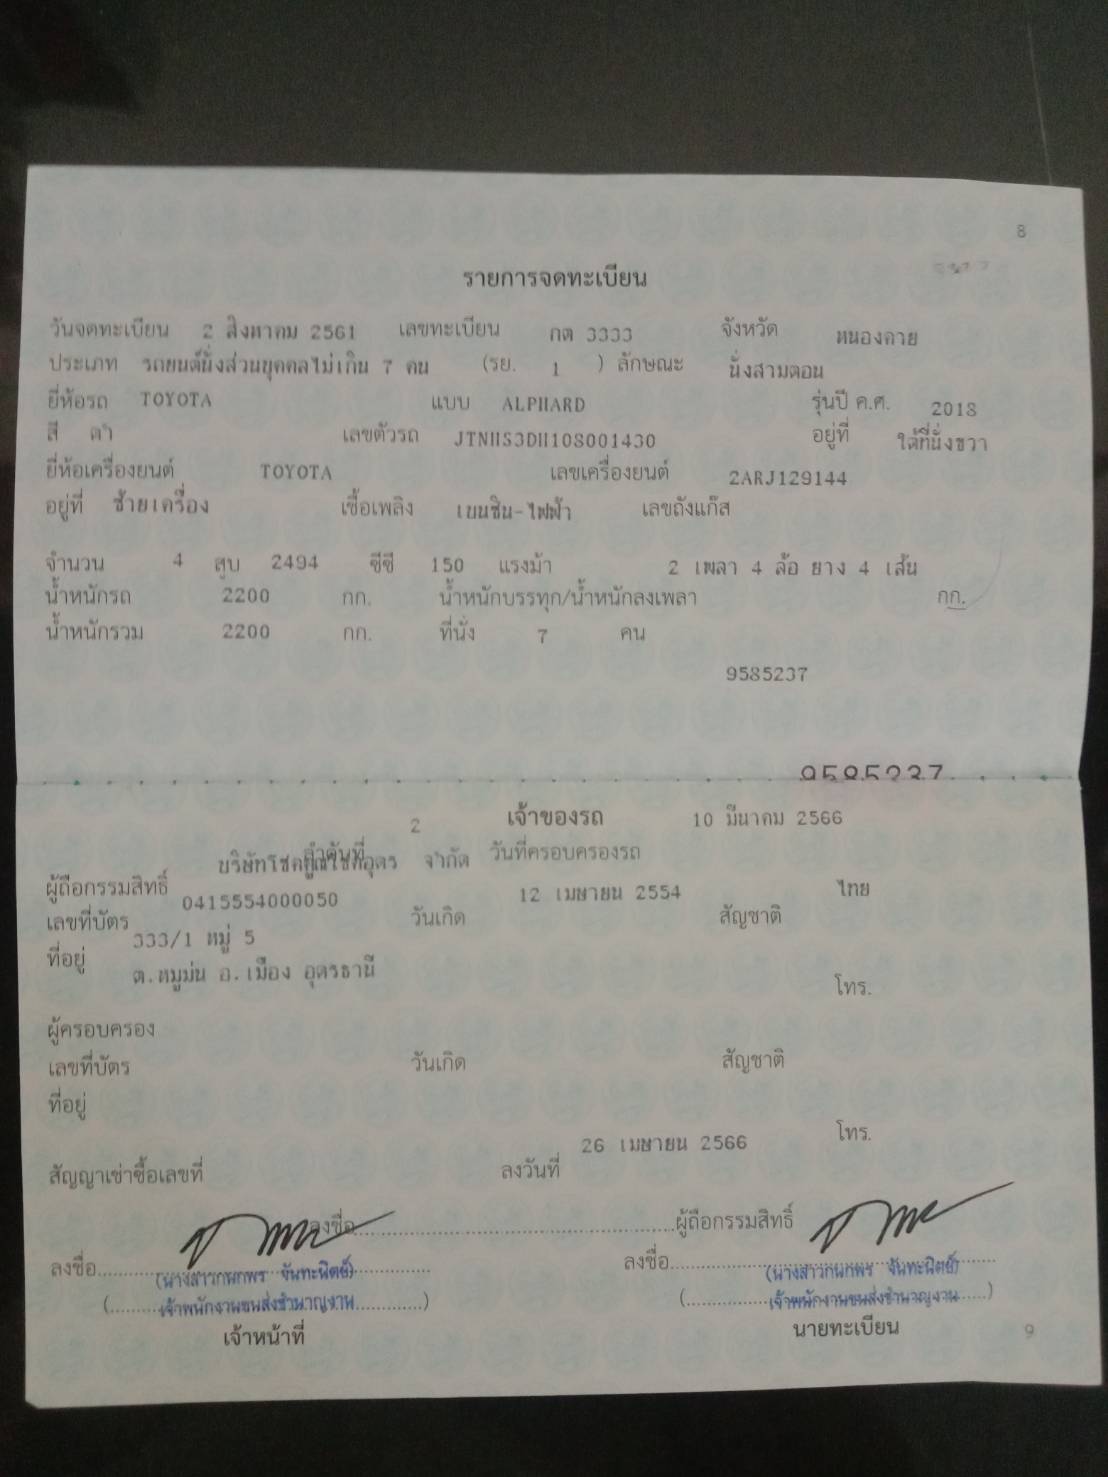 8
รายการจดทะเบียน
วันจดทะเบียน 2 สิงหาคม 2561 เลขทะเบียน กต 3333 จังหวัด หนองคาย
ประเภท รถยนต์นั่งส่วนบุคคลไม่เกิน 7 คน (รย. 1 ) ลักษณะ นั่งสามตอน
ยี่ห้อรถ TOYOTA แบบ ALPHARD รุ่นปี ค.ศ. 2018
สี ดำ เลขตัวรถ JTNHS3DH108001430 อยู่ที่ ใต้ที่นั่งขวา
ยี่ห้อเครื่องยนต์ TOYOTA เลขเครื่องยนต์ 2ARJ129144
อยู่ที่ ซ้ายเครื่อง เชื้อเพลิง เบนซิน-ไฟฟ้า เลขถังแก๊ส
จำนวน 4 สูบ 2494 ซีซี 150 แรงม้า 2 เพลา 4 ล้อ ยาง 4 เส้น
น้ำหนักรถ 2200 กก. น้ำหนักบรรทุก/น้ำหนักลงเพลา กก.
น้ำหนักรวม 2200 กก. ที่นั่ง 7 คน
9585237
9585237
ลำดับที่ 2 เจ้าของรถ 10 มีนาคม 2566
บริษัทโชค จำกัด วันที่ครอบครองรถ
ผู้ถือกรรมสิทธิ์
เลขที่บัตร 0415554000050 วันเกิด 12 เมษายน 2554 สัญชาติ ไทย
ที่อยู่ 333/1 หมู่ 5
ต.หมูม่น อ.เมือง อุดรธานี
โทร.
ผู้ครอบครอง
เลขที่บัตร วันเกิด สัญชาติ
ที่อยู่
โทร.
สัญญาเช่าซื้อเลขที่ ลงวันที่ 26 เมษายน 2566
ลงชื่อ ผู้ถือกรรมสิทธิ์
ลงชื่อ ลงชื่อ
(นางสาวกนกพร จันทะนิตย์) (นางสาวกนกพร จันทะนิตย์)
(เจ้าพนักงานขนส่งชำนาญงาน) (เจ้าพนักงานขนส่งชำนาญงาน)
เจ้าหน้าที่ นายทะเบียน
9